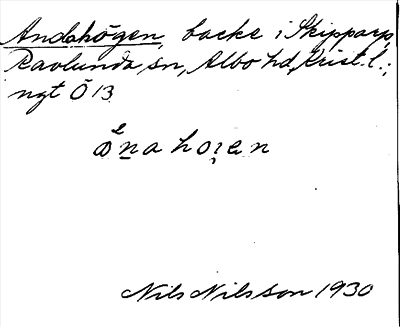 Andahögen, backe i Skipparp,
Ravlunda sn, Albo hd, Krist. l.;
ngt Ö 13
Nils Nilsson 1930